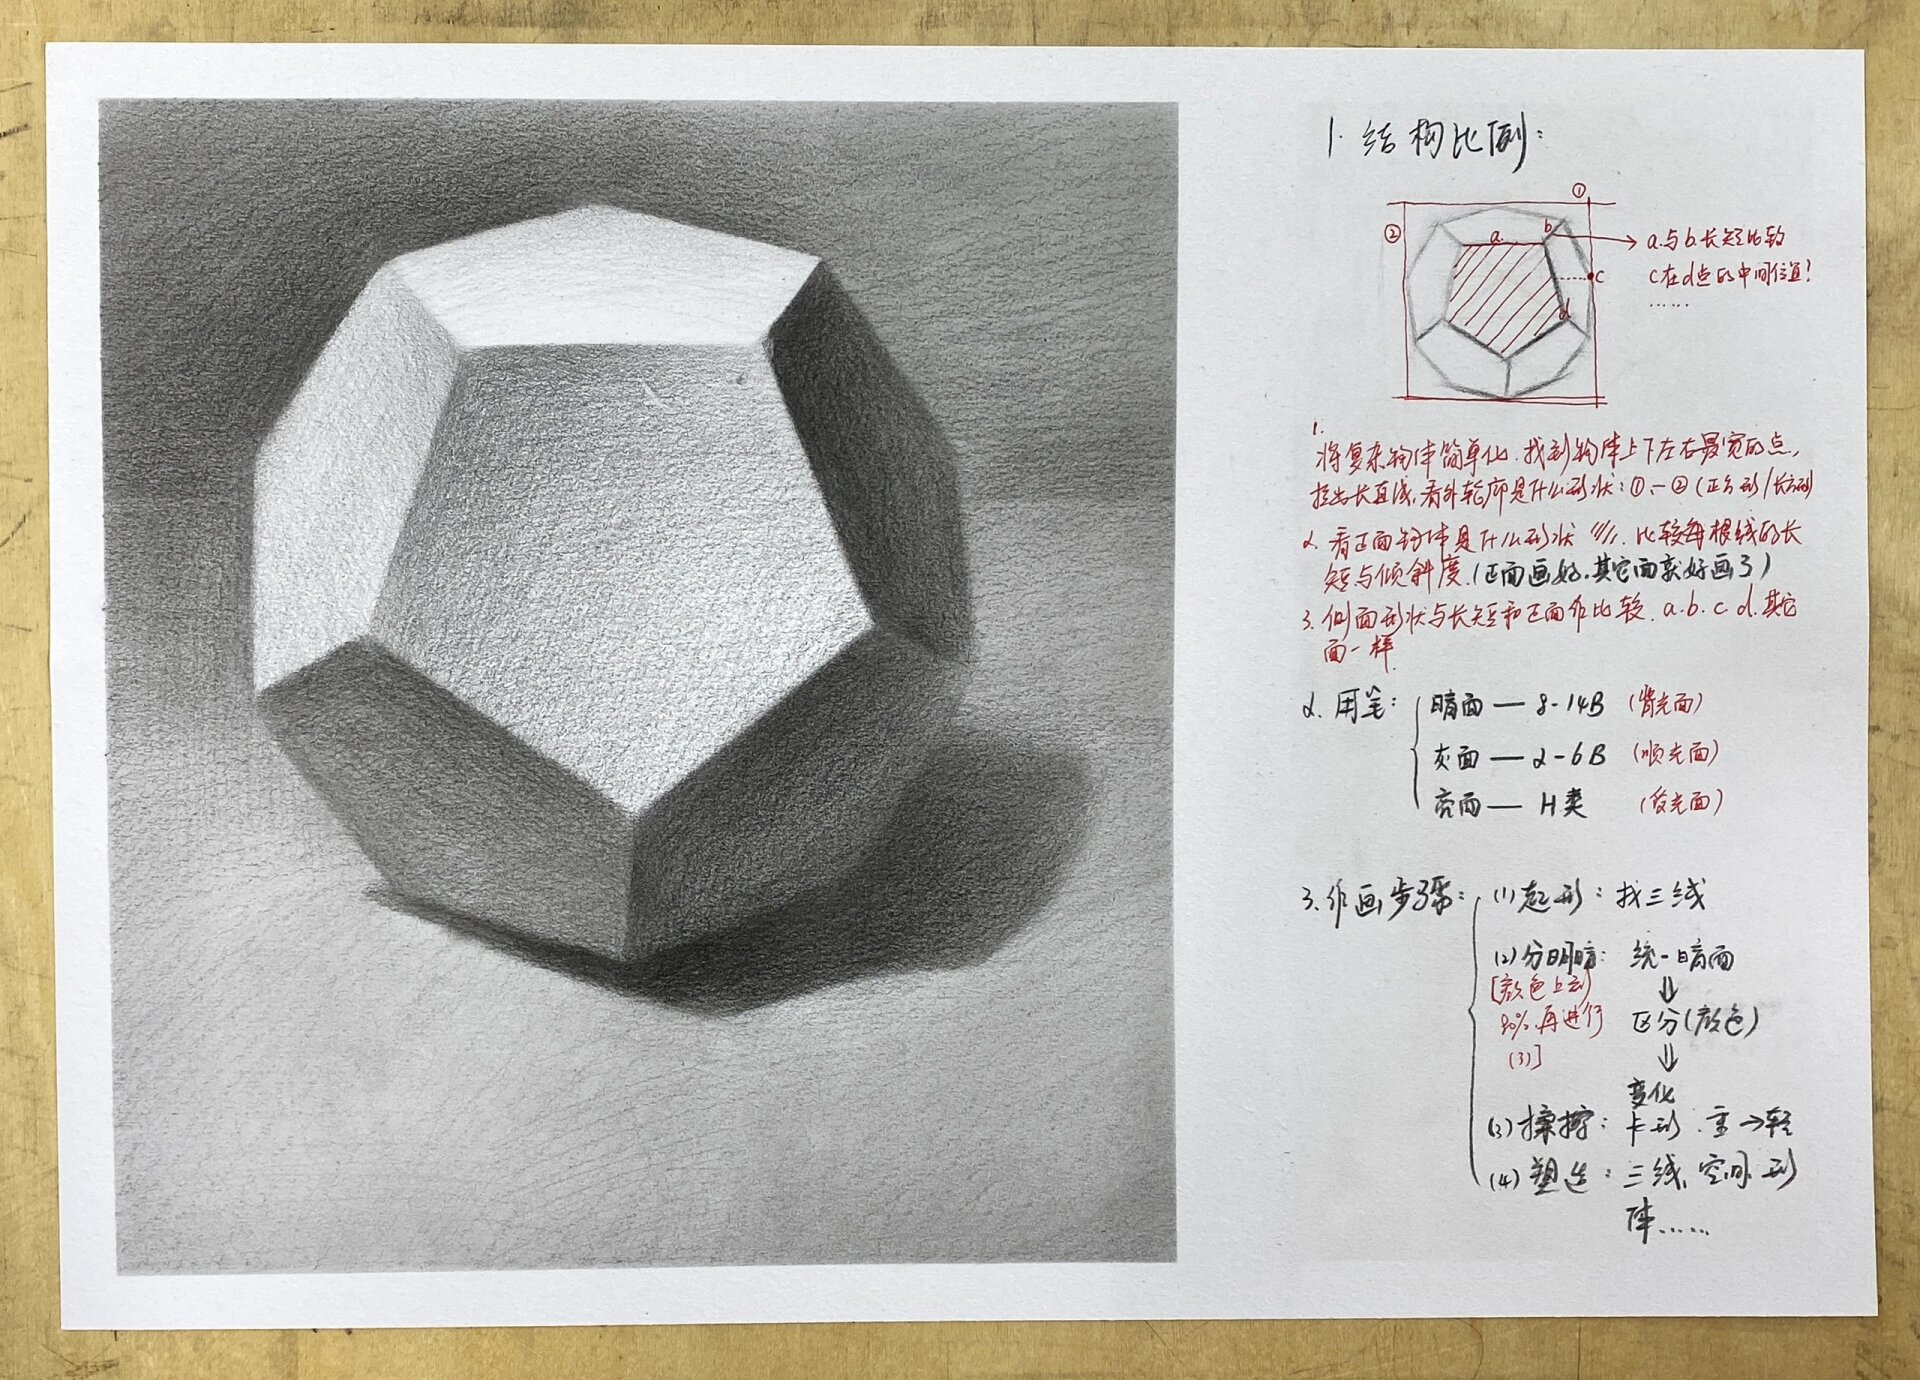 1. 结构比例:
①
②
a.
b
c
d
a与b.长短比较
c在d点的中间位置!
......
1.
将复杂物体简单化.找到物体上下左右最宽的点,
拉出长直线,看外轮廓是什么形状:①、②(正方形/长方形)
2. 看正面物体是什么形状 ////. 比较每根线的长
短与倾斜度.(正面画好.其它面就好画了)
3. 侧面形状与长短和正面作比较.a.b.c.d.其它
面一样
2. 用笔:
暗面 — 8-14B (背光面)
灰面 — 2-6B (顺光面)
亮面 — H类 (受光面)
3. 作画步骤:
(1)起形: 找三线
(2)分明暗: 统一暗面
[颜色上到
80%.再进行
(3)]
⇓
区分(颜色)
⇓
变化
(3)揉擦: 卡形.重→轻
(4)塑造: 三线、空间、形
体......